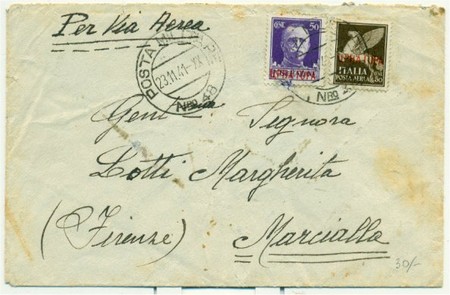 Per Via Aerea
POSTA MILITARE
23.11.41
No 48
50
ITALIA
POSTA AEREA
No
Gent Signora
Lotti Margherita
(Firenze) Marcialla
30/-